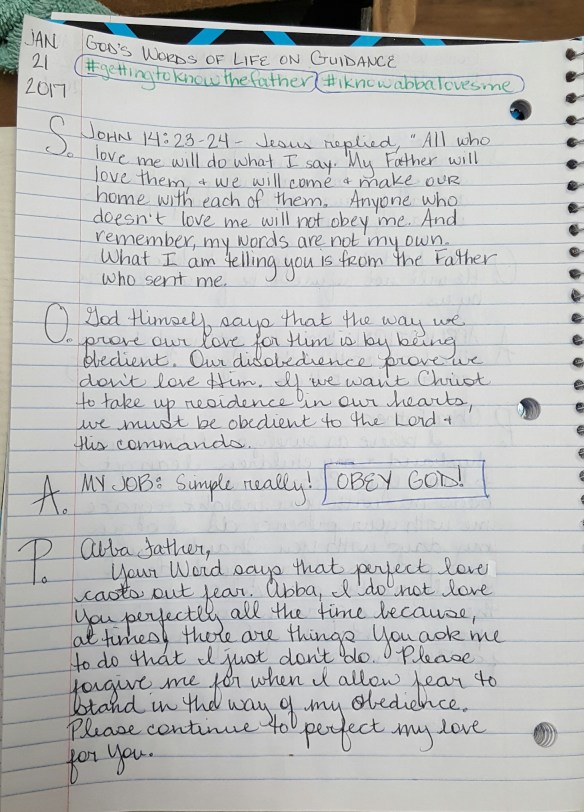 JAN
21
2017
GOD'S WORDS OF LIFE ON GUIDANCE
#gettingtoknowthefather #iknowabbalovesme
S. JOHN 14:23-24 - Jesus replied, "All who
love me will do what I say. My Father will
love them, + we will come + make our
home with each of them. Anyone who
doesn't love me will not obey me. And
remember, my words are not my own.
What I am telling you is from the Father
who sent me.
O. God Himself says that the way we
prove our love for Him is by being
obedient. Our disobedience prove we
don't love Him. If we want Christ
to take up residence in our hearts,
we must be obedient to the Lord +
His commands.
A. MY JOB: Simple really! OBEY GOD!
P. Abba Father,
Your Word says that perfect love
casts out fear. Abba, I do not love
You perfectly all the time because,
at times, there are things You ask me
to do that I just don't do. Please
forgive me for when I allow fear to
stand in the way of my obedience.
Please continue to perfect my love
for You.